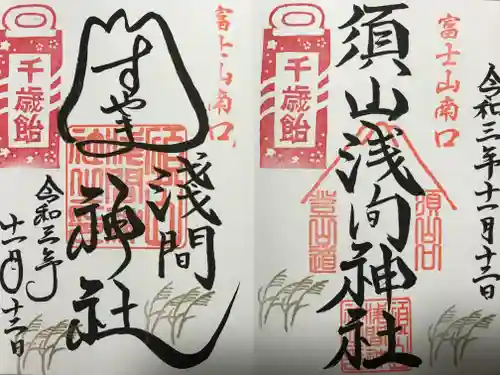 富士山南口
令和三年十一月十二日
須山浅間神社
千歳飴
須山口
登山道
富士山南口
すやま
淺間
神社
千歳飴
令和三年
十一月十二日